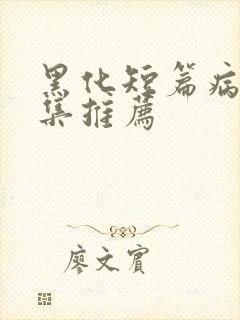 黑化短篇病
集推薦
廖文賓